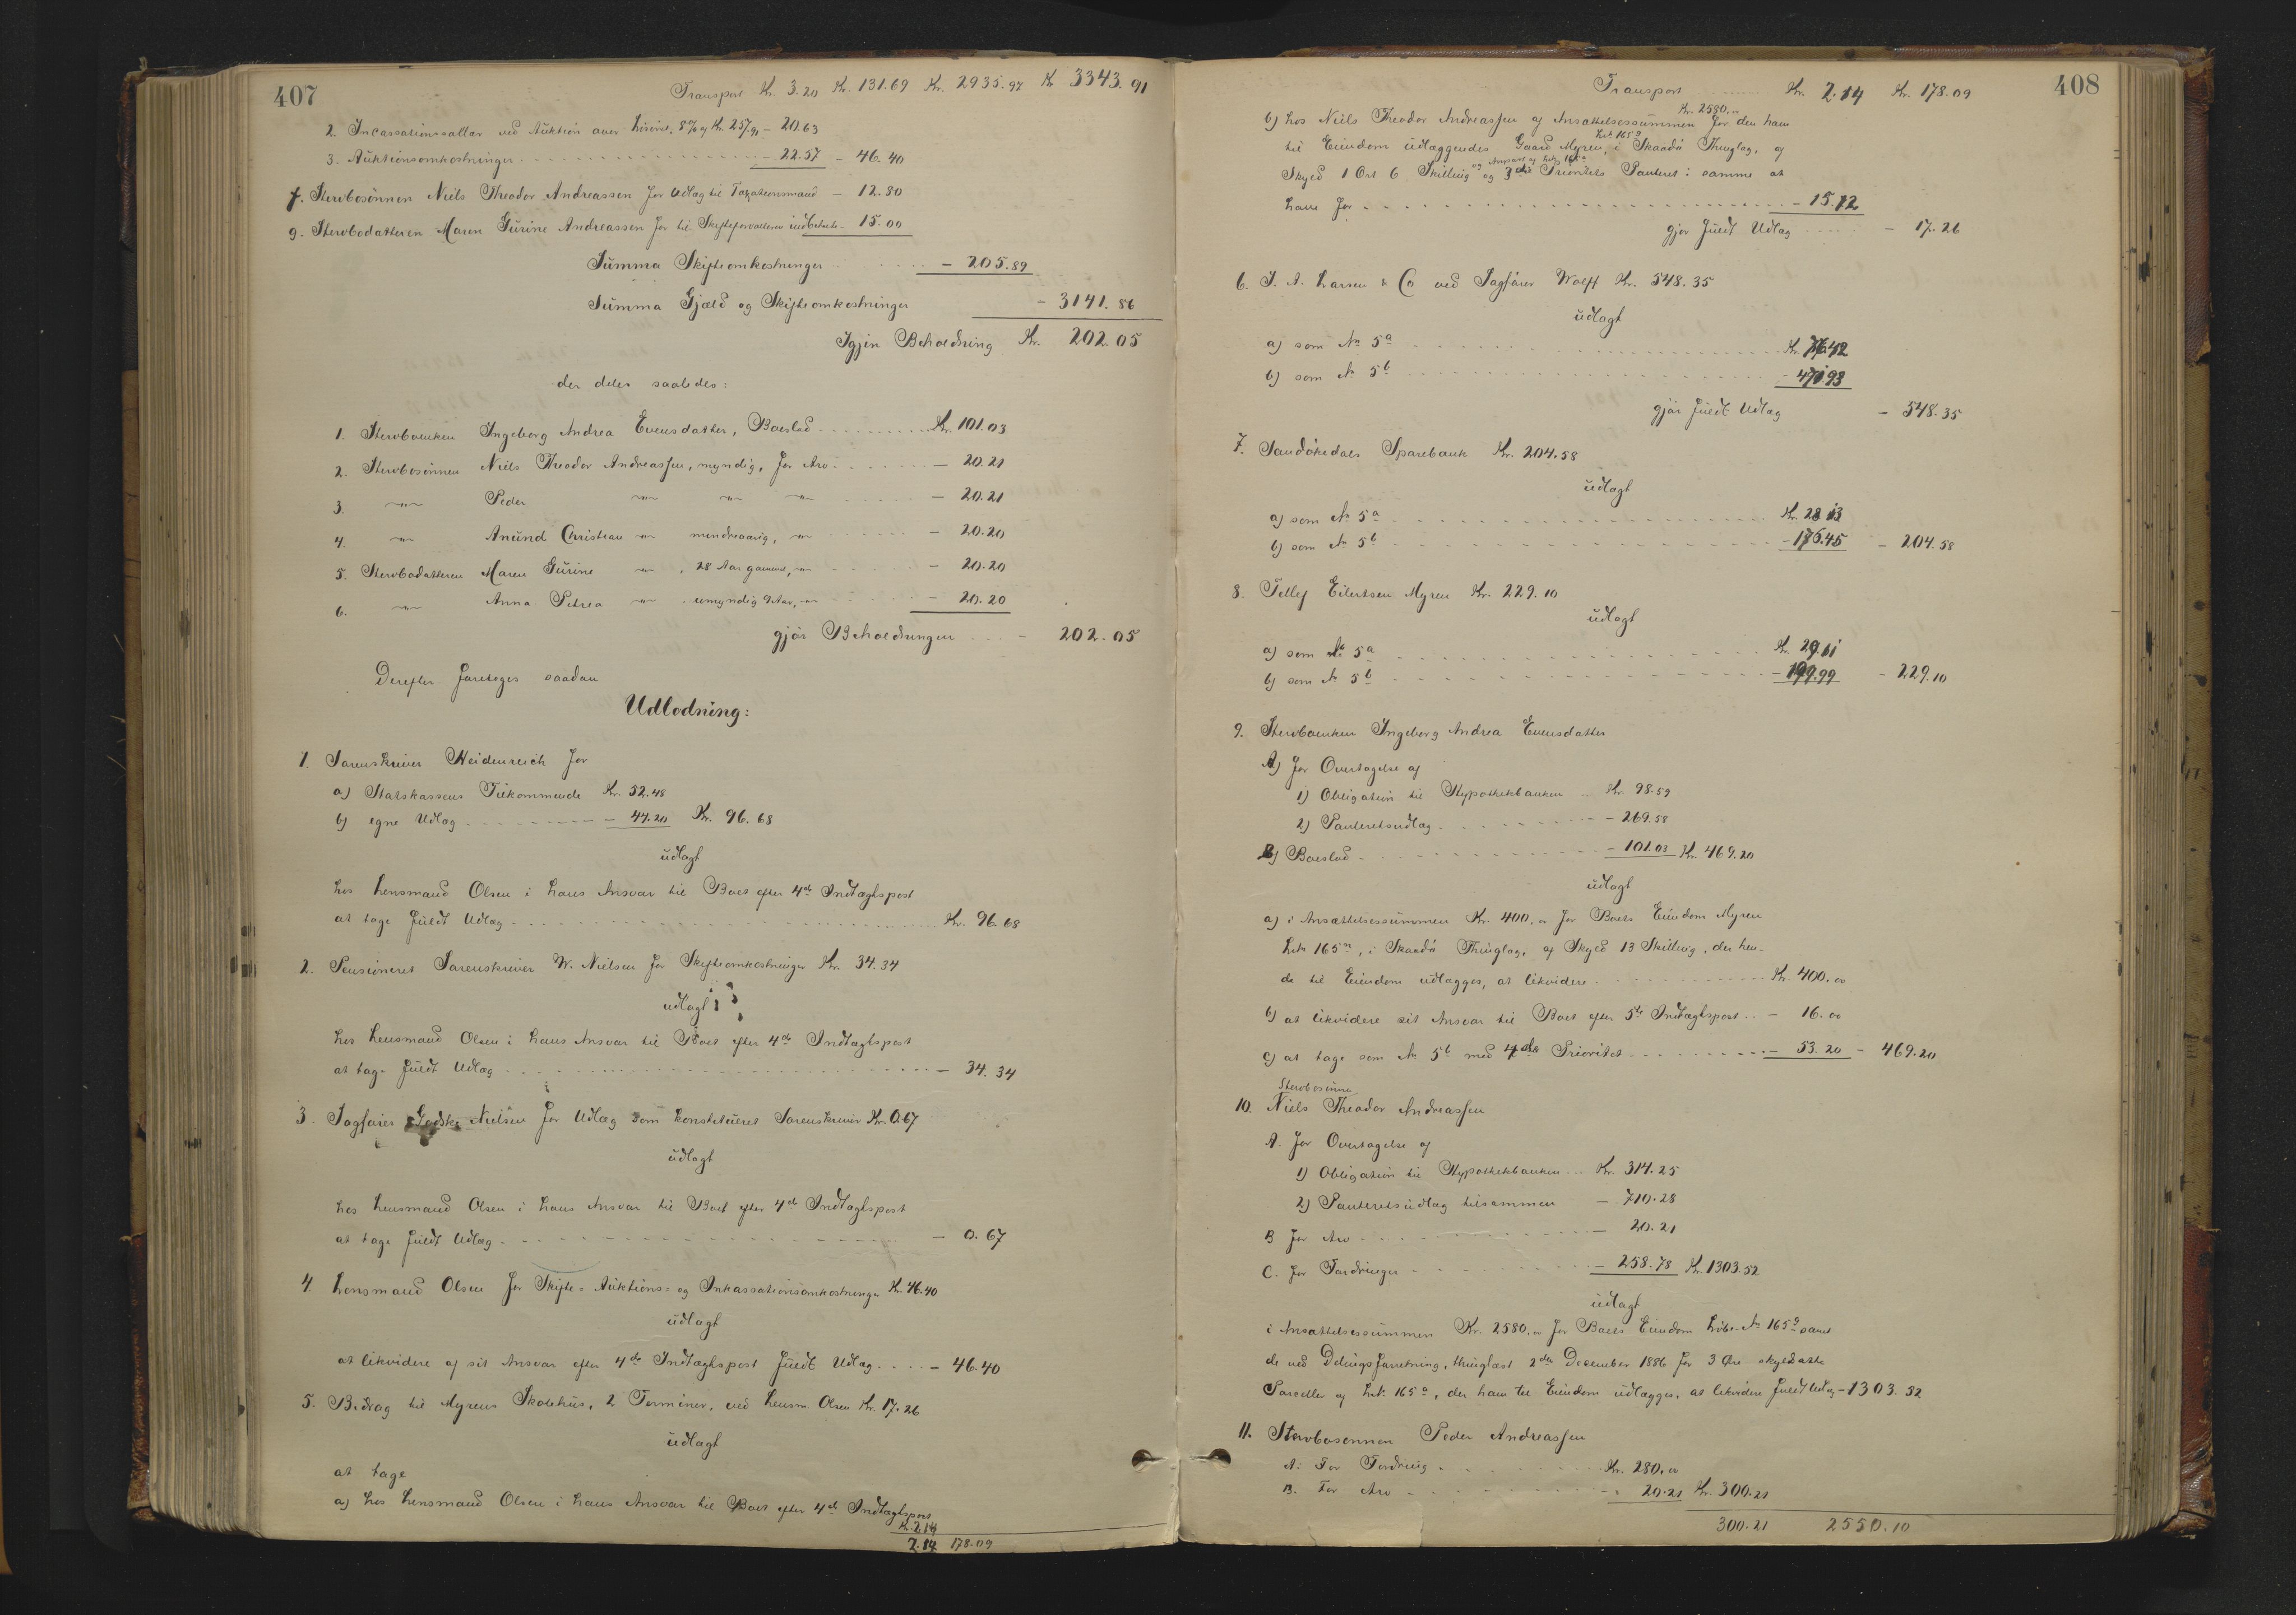 407
Transport Kr. 3.20 Kr. 131.69 Kr. 2935.97 Kr 3343.91
2. Incassationssallær ved Auktion over Løsøret, 8% af Kr. 257.91 - 20.63
3. Auktionsomkostninger - 22.57 - 46.40
f. Stervbosønnen Niels Theodor Andreassen for Udlæg til Taxationsmænd - 12.80
g. Stervbodatteren Maren Gurine Andreassen for til Skifteforvalteren indbetalt - 15.00
Summa Skifteomkostninger - 205.89
Summa Gjæld og Skifteomkostninger - 3141.86
Igjen Beholdning Kr. 202.05
der deles saaledes:
1. Stervboenken Ingeborg Andrea Evensdatter, Boeslod Kr. 101.03
2. Stervbosønnen Niels Theodor Andreassen, myndig, for Arv - 20.21
3. -"- Peder -"- -"- -"- - 20.21
4. -"- Anund Christian -"- mindreaarig, -"- - 20.20
5. Stervbodatteren Maren Gurine -"- , 28 Aar gammel, -"- - 20.20
6. -"- Anna Petrea -"- , umyndig 9 Aar, -"- - 20.20
gjør Beholdningen - 202.05
Derefter foretoges saadan
Udlodning:
1. Sorenskriver Heidenreich for
a) Statskassens Tilkommende Kr. 52.48
b) egne Udlæg - 44.20 Kr. 96.68
udlagt
hos Lensmand Olsen i hans Ansvar til Boet efter 4de Indtægtspost
at tage fuldt Udlæg Kr. 96.68
2. Pensioneret Sorenskriver W. Nielsen for Skifteomkostninger Kr. 34.34
udlagt
hos Lensmand Olsen i hans Ansvar til Boet efter 4de Indtægtspost
at tage fuldt Udlæg - 34.34
3. Sagfører Nielsen for Udlæg som konstitueret Sorenskriver Kr. 0.67
udlagt
hos Lensmand Olsen i hans Ansvar til Boet efter 4de Indtægtspost
at tage fuldt Udlæg - 0.67
4. Lensmand Olsen for Skifte- Auktions- og Inkassationsomkostninger Kr. 46.40
udlagt
at likvidere af sit Ansvar efter 4de Indtægtspost fuldt Udlæg - 46.40
5. Bidrag til Myrens Skolehus, 2 Terminer, ved Lensm. Olsen Kr. 17.26
udlagt
at tage
a) hos Lensmand Olsen i hans Ansvar til Boet efter 4de Indtægtspost
Kr. 2.14
2.14 178.09
408
Transport Kr. 2.14 Kr. 178.09
b) hos Niels Theodor Andreassen af Ansættelsessummen Kr. 2580.00 for den ham
til Eiendom udlæggendes Gaard Myren, Lnr 165a i Skaadø Thinglag, af
Skyld 1 Ort 6 Skilling og 3die Prioritets Panteret i samme at
have for - 15.12
gjør fuldt Udlæg - 17.26
6. J. A. Larsen & Co ved Sagfører Wolff Kr. 548.35
udlagt
a) som No 5a Kr. 76.42
b) som No 5b - 471.93
gjør fuldt Udlæg - 548.35
7. Sandøkedals Sparebank Kr. 204.58
udlagt
a) som No 5a Kr. 28.13
b) som No 5b - 176.45 - 204.58
8. Tellef Eilertsen Myren Kr. 229.10
udlagt
a) som No 5a Kr. 29.11
b) som No 5b - 199.99 - 229.10
9. Stervboenken Ingeborg Andrea Evensdatter
A) for Overtagelse af
1) Obligation til Hypothekbanken Kr. 98.59
2) Panteretsudlæg - 269.58
B) Boeslod - 101.03 Kr. 469.20
udlagt
a) i Ansættelsessummen Kr. 400.00 for Boets Eiendom Myren
Lnr 165m, i Skaadø Thinglag, af Skyld 13 Skilling, der hen-
de til Eiendom udlægges, at likvidere Kr. 400.00
b) at likvidere sit Ansvar til Boet efter 5te Indtægtspost - 16.00
c) at tage som No 5b med 4de Prioritet - 53.20 - 469.20
Stervbosønnen
10. Niels Theodor Andreassen
A. for Overtagelse af
1) Obligation til Hypothekbanken Kr. 314.25
2) Panteretsudlæg tilsammen - 710.28
B for Arv - 20.21
C. for Fordringer - 258.78 Kr. 1303.52
udlagt
i Ansættelsessummen Kr. 2580.00 for Boets Eiendom Løbe-No 165a samt
de ved Delingsforretning, thinglæst 2den December 1886 for 3 Øre skyldsatte
Parceller af Lnr. 165a, der ham til Eiendom udlægges, at likvidere fuldt Udlæg - 1303.52
11. Stervbosønnen Peder Andreassen
A: For Fordring Kr. 280.00
B. For Arv - 20.21 Kr. 300.21
300.21 2550.10